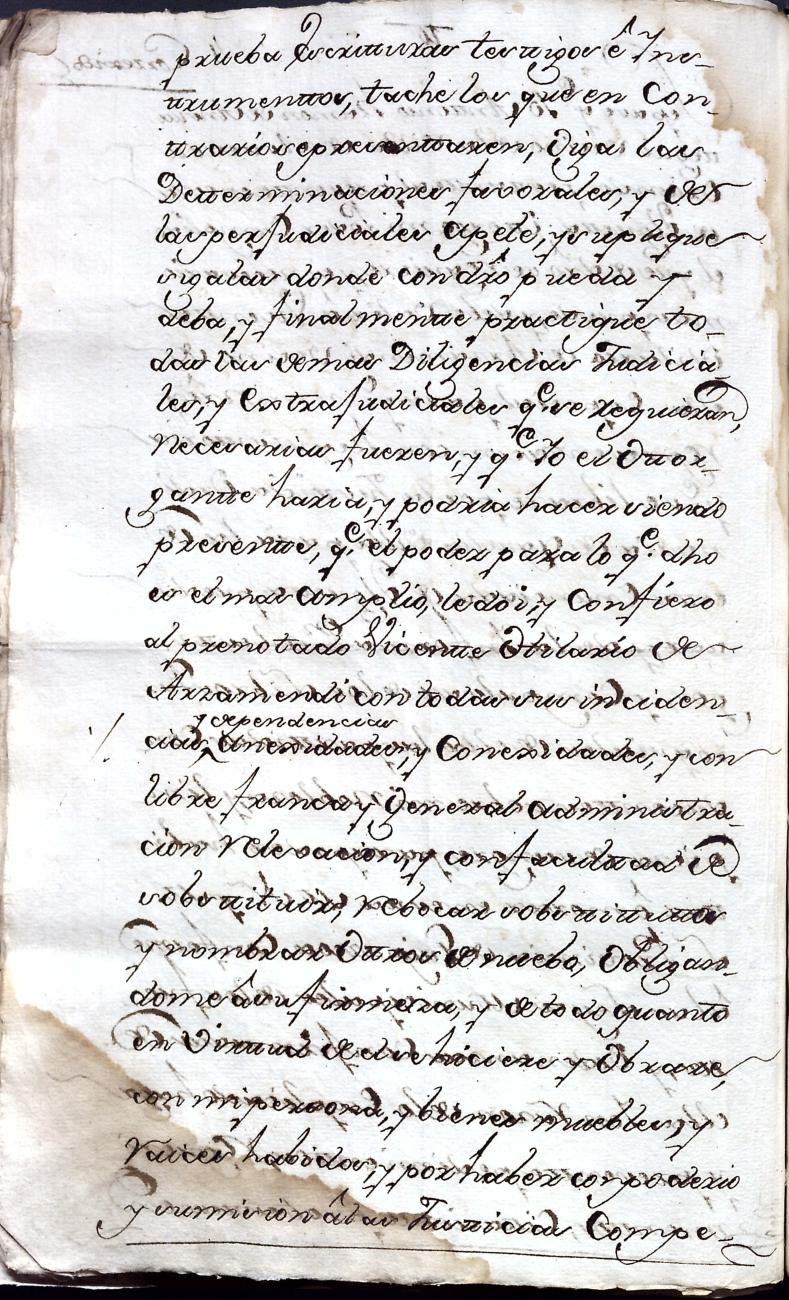 prueba Escrituras testigos ê Ins-
trumentos, tache los que en Con-
trario se presentaren, Oiga las
Determinaciones favorales, y de
las perJudiciales apele, y suplique
sigalas donde con dr̃o pueda y
deba, y finalmente practique to-
das las demas Diligencias Judicia-
les, y ExtraJudiciales q.e se requieran,
Necesarias fueren, y q.e Yo el Otor-
gante haria, y podria hacer siendo
presente, q.e el poder para lo q.e dho
es el mas amplio, le doi, y Confiero
al prenotado Vicente Hilario de
Arzamendi con todas sus inciden-
y dependencias
cias, Anexidades, y Conexidades, y con
libre franca y General administra-
cion Relevacion, y con facultad de
sobstituir, Rebocar sobstitutos
y nombrar Otros de nuebo, Obligan-
dome â su firmeza, y de todo quanto
en Virtud de el se hiciere y Obrare,
con mi persona, y bienes muebles, y
Raices habidos, y por haber con poderio
y sumision â las Justicias Compe-